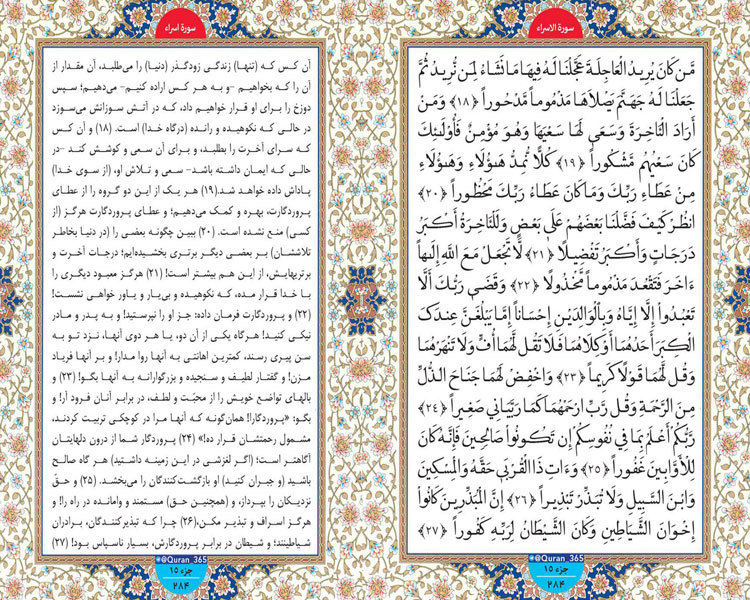 سورة الاسراء
مَّن كَانَ يُرِيدُ الْعَاجِلَةَ عَجَّلْنَا لَهُ فِيهَا مَا نَشَاءُ لِمَن نُّرِيدُ ثُمَّ
جَعَلْنَا لَهُ جَهَنَّمَ يَصْلَاهَا مَذْمُوماً مَّدْحُوراً ﴿١٨﴾ وَمَنْ
أَرَادَ الْـَٔاخِرَةَ وَسَعَى لَهَا سَعْيَهَا وَهُوَ مُؤْمِنٌ فَأُوْلَـٰئِكَ
كَانَ سَعْيُهُم مَّشْكُوراً ﴿١٩﴾ كُلًّا نُّمِدُّ هَـٰؤُلَاءِ وَهَـٰؤُلَاءِ
مِنْ عَطَاءِ رَبِّكَ وَمَا كَانَ عَطَاءُ رَبِّكَ مَحْظُوراً ﴿٢٠﴾
انظُرْ كَيْفَ فَضَّلْنَا بَعْضَهُمْ عَلَى بَعْضٍ وَلَلْـَٔاخِرَةُ أَكْبَرُ
دَرَجَاتٍ وَأَكْبَرُ تَفْضِيلًا ﴿٢١﴾ لَّا تَجْعَلْ مَعَ اللَّهِ إِلَـٰهاً
ءَاخَرَ فَتَقْعُدَ مَذْمُوماً مَّخْذُولًا ﴿٢٢﴾ وَقَضَى رَبُّكَ أَلَّا
تَعْبُدُوا إِلَّا إِيَّاهُ وَبِالْوَالِدَيْنِ إِحْسَاناً إِمَّا يَبْلُغَنَّ عِندَكَ
الْكِبَرَ أَحَدُهُمَا أَوْ كِلَاهُمَا فَلَا تَقُل لَّهُمَا أُفٍّ وَلَا تَنْهَرْهُمَا
وَقُل لَّهُمَا قَوْلًا كَرِيماً ﴿٢٣﴾ وَاخْفِضْ لَهُمَا جَنَاحَ الذُّلِّ
مِنَ الرَّحْمَةِ وَقُل رَّبِّ ارْحَمْهُمَا كَمَا رَبَّيَانِي صَغِيراً ﴿٢٤﴾
رَبُّكُمْ أَعْلَمُ بِمَا فِي نُفُوسِكُمْ إِن تَكُونُواْ صَالِحِينَ فَإِنَّهُ كَانَ
لِلْأَوَّابِينَ غَفُوراً ﴿٢٥﴾ وَءَاتِ ذَا الْقُرْبَى حَقَّهُ وَالْمِسْكِينَ
وَابْنَ السَّبِيلِ وَلَا تُبَذِّرْ تَبْذِيراً ﴿٢٦﴾ إِنَّ الْمُبَذِّرِينَ كَانُواْ
إِخْوَانَ الشَّيَاطِينِ وَكَانَ الشَّيْطَانُ لِرَبِّهِ كَفُوراً ﴿٢٧﴾
@Quran_365
جزء ١٥
٢٨٤
سورة اسراء
آن کس که (تنها) زندگی زودگذر (دنیا) را می‌طلبد، آن مقدار از
آن را که بخواهیم -و به هر کس اراده کنیم- می‌دهیم؛ سپس
دوزخ را برای او قرار خواهیم داد، که در آتش سوزانش می‌سوزد
در حالی که نکوهیده و رانده (درگاه خدا) است. (١٨) و آن کس
که سرای آخرت را بطلبد، و برای آن سعی و کوشش کند -در
حالی که ایمان داشته باشد- سعی و تلاش او، (از سوی خدا)
پاداش داده خواهد شد.(١٩) هر یک از این دو گروه را از عطای
پروردگارت، بهره و کمک می‌دهیم؛ و عطای پروردگارت هرگز (از
کسی) منع نشده است. (٢٠) ببین چگونه بعضی را (در دنیا بخاطر
تلاششان) بر بعضی دیگر برتری بخشیده‌ایم؛ درجات آخرت و
برتریهایش، از این هم بیشتر است! (٢١) هرگز معبود دیگری را
با خدا قرار مده، که نکوهیده و بی‌یار و یاور خواهی نشست!
(٢٢) و پروردگارت فرمان داده: جز او را نپرستید! و به پدر و مادر
نیکی کنید! هرگاه یکی از آن دو، یا هر دوی آنها، نزد تو به
سن پیری رسند، کمترین اهانتی به آنها روا مدار! و بر آنها فریاد
مزن! و گفتار لطیف و سنجیده و بزرگوارانه به آنها بگو! (٢٣) و
بالهای تواضع خویش را از محبّت و لطف، در برابر آنان فرود آر! و
بگو: «پروردگارا! همان‌گونه که آنها مرا در کوچکی تربیت کردند،
مشمول رحمتشان قرار ده!» (٢٤) پروردگار شما از درون دلهایتان
آگاهتر است؛ (اگر لغزشی در این زمینه داشتید) هر گاه صالح
باشید (و جبران کنید) او بازگشت‌کنندگان را می‌بخشد. (٢٥) و حقّ
نزدیکان را بپرداز، و (همچنین حق) مستمند و وامانده در راه را! و
هرگز اسراف و تبذیر مکن،(٢٦) چرا که تبذیرکنندگان، برادران
شیاطینند؛ و شیطان در برابر پروردگارش، بسیار ناسپاس بود! (٢٧)
@Quran_365
جزء ١٥
٢٨٤